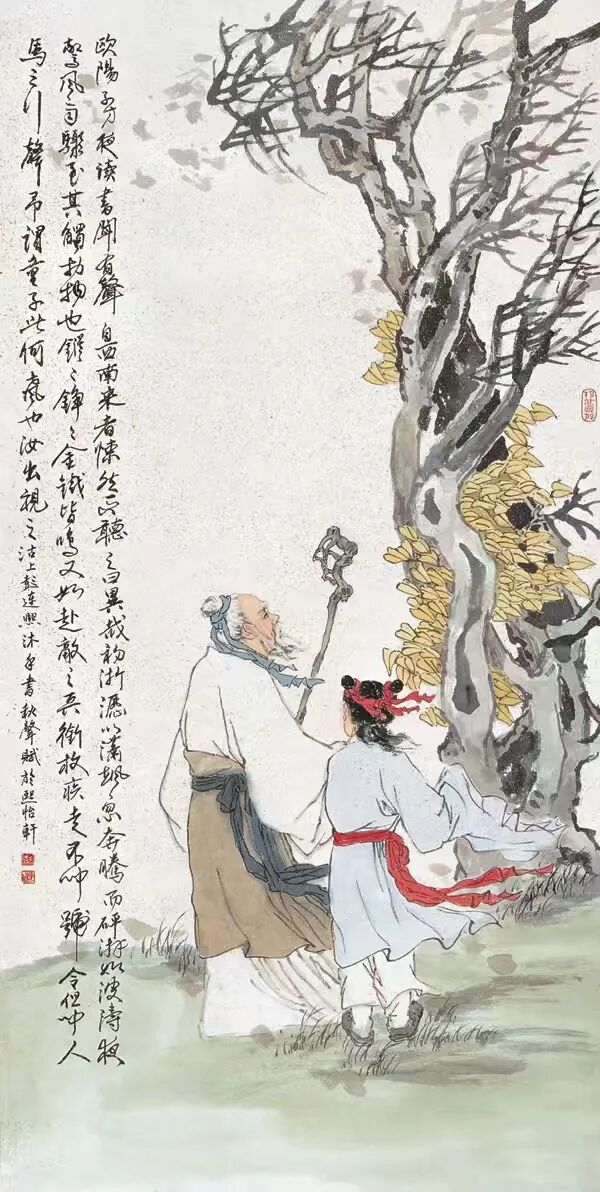 歐陽子方夜读書聞有聲自西南来者悚然而聽之曰異哉初淅瀝以瀟颯忽奔騰而砰湃如波濤夜
驚風雨驟至其觸於物也鏦〻錚〻金鐵皆鳴又如赴敵之兵銜枚疾走不聞號令但聞人
馬之行聲予謂童子此何聲也汝出視之沽上彭連熙沐手書秋聲賦於熙怡軒